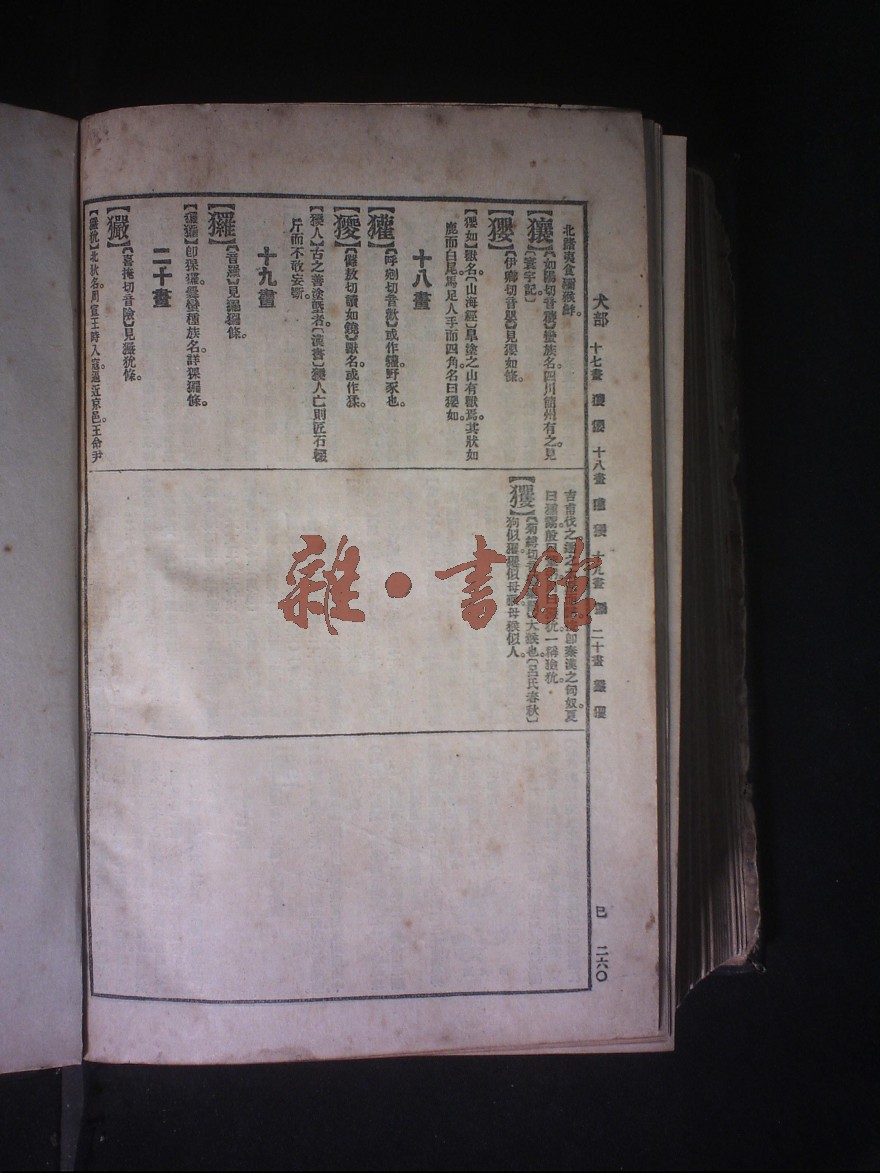 犬部 十七畫 玃 十八畫 十九畫 二十畫
巳 二六〇
北諸夷食獼猴鮓。
【獽】【如陽切音穰】蠻族名。四川簡州有之。見
【寰宇記】
【玃】【伊卿切音嬰】見玃如條。
【玃如】獸名。【山海經】臯塗之山有獸焉。其狀如
鹿而白尾馬足人手而四角名曰玃如。
十八畫
【獾】【呼剜切音歡】或作貛。野豕也。
【獶】獸名。或作猱。
【獶人】古之善塗塈者。【漢書】獶人亡則匠石輟
斤而不敢妄斲。
十九畫
【玀】【音羅】見猓玀條。
即猓玀。爨蠻種族名。詳猓玀條。
二十畫
【玁】【喜掩切音險】見玁狁條。
【玁狁】北狄名。周宣王時入寇逼近京邑。王命尹
吉甫伐之 即秦漢之匈奴。夏
曰 狁一稱 狁。
【玃】 切音 大 也【呂氏春秋】
狗似玃。玃似母猴。母猴似人。
雜·書館